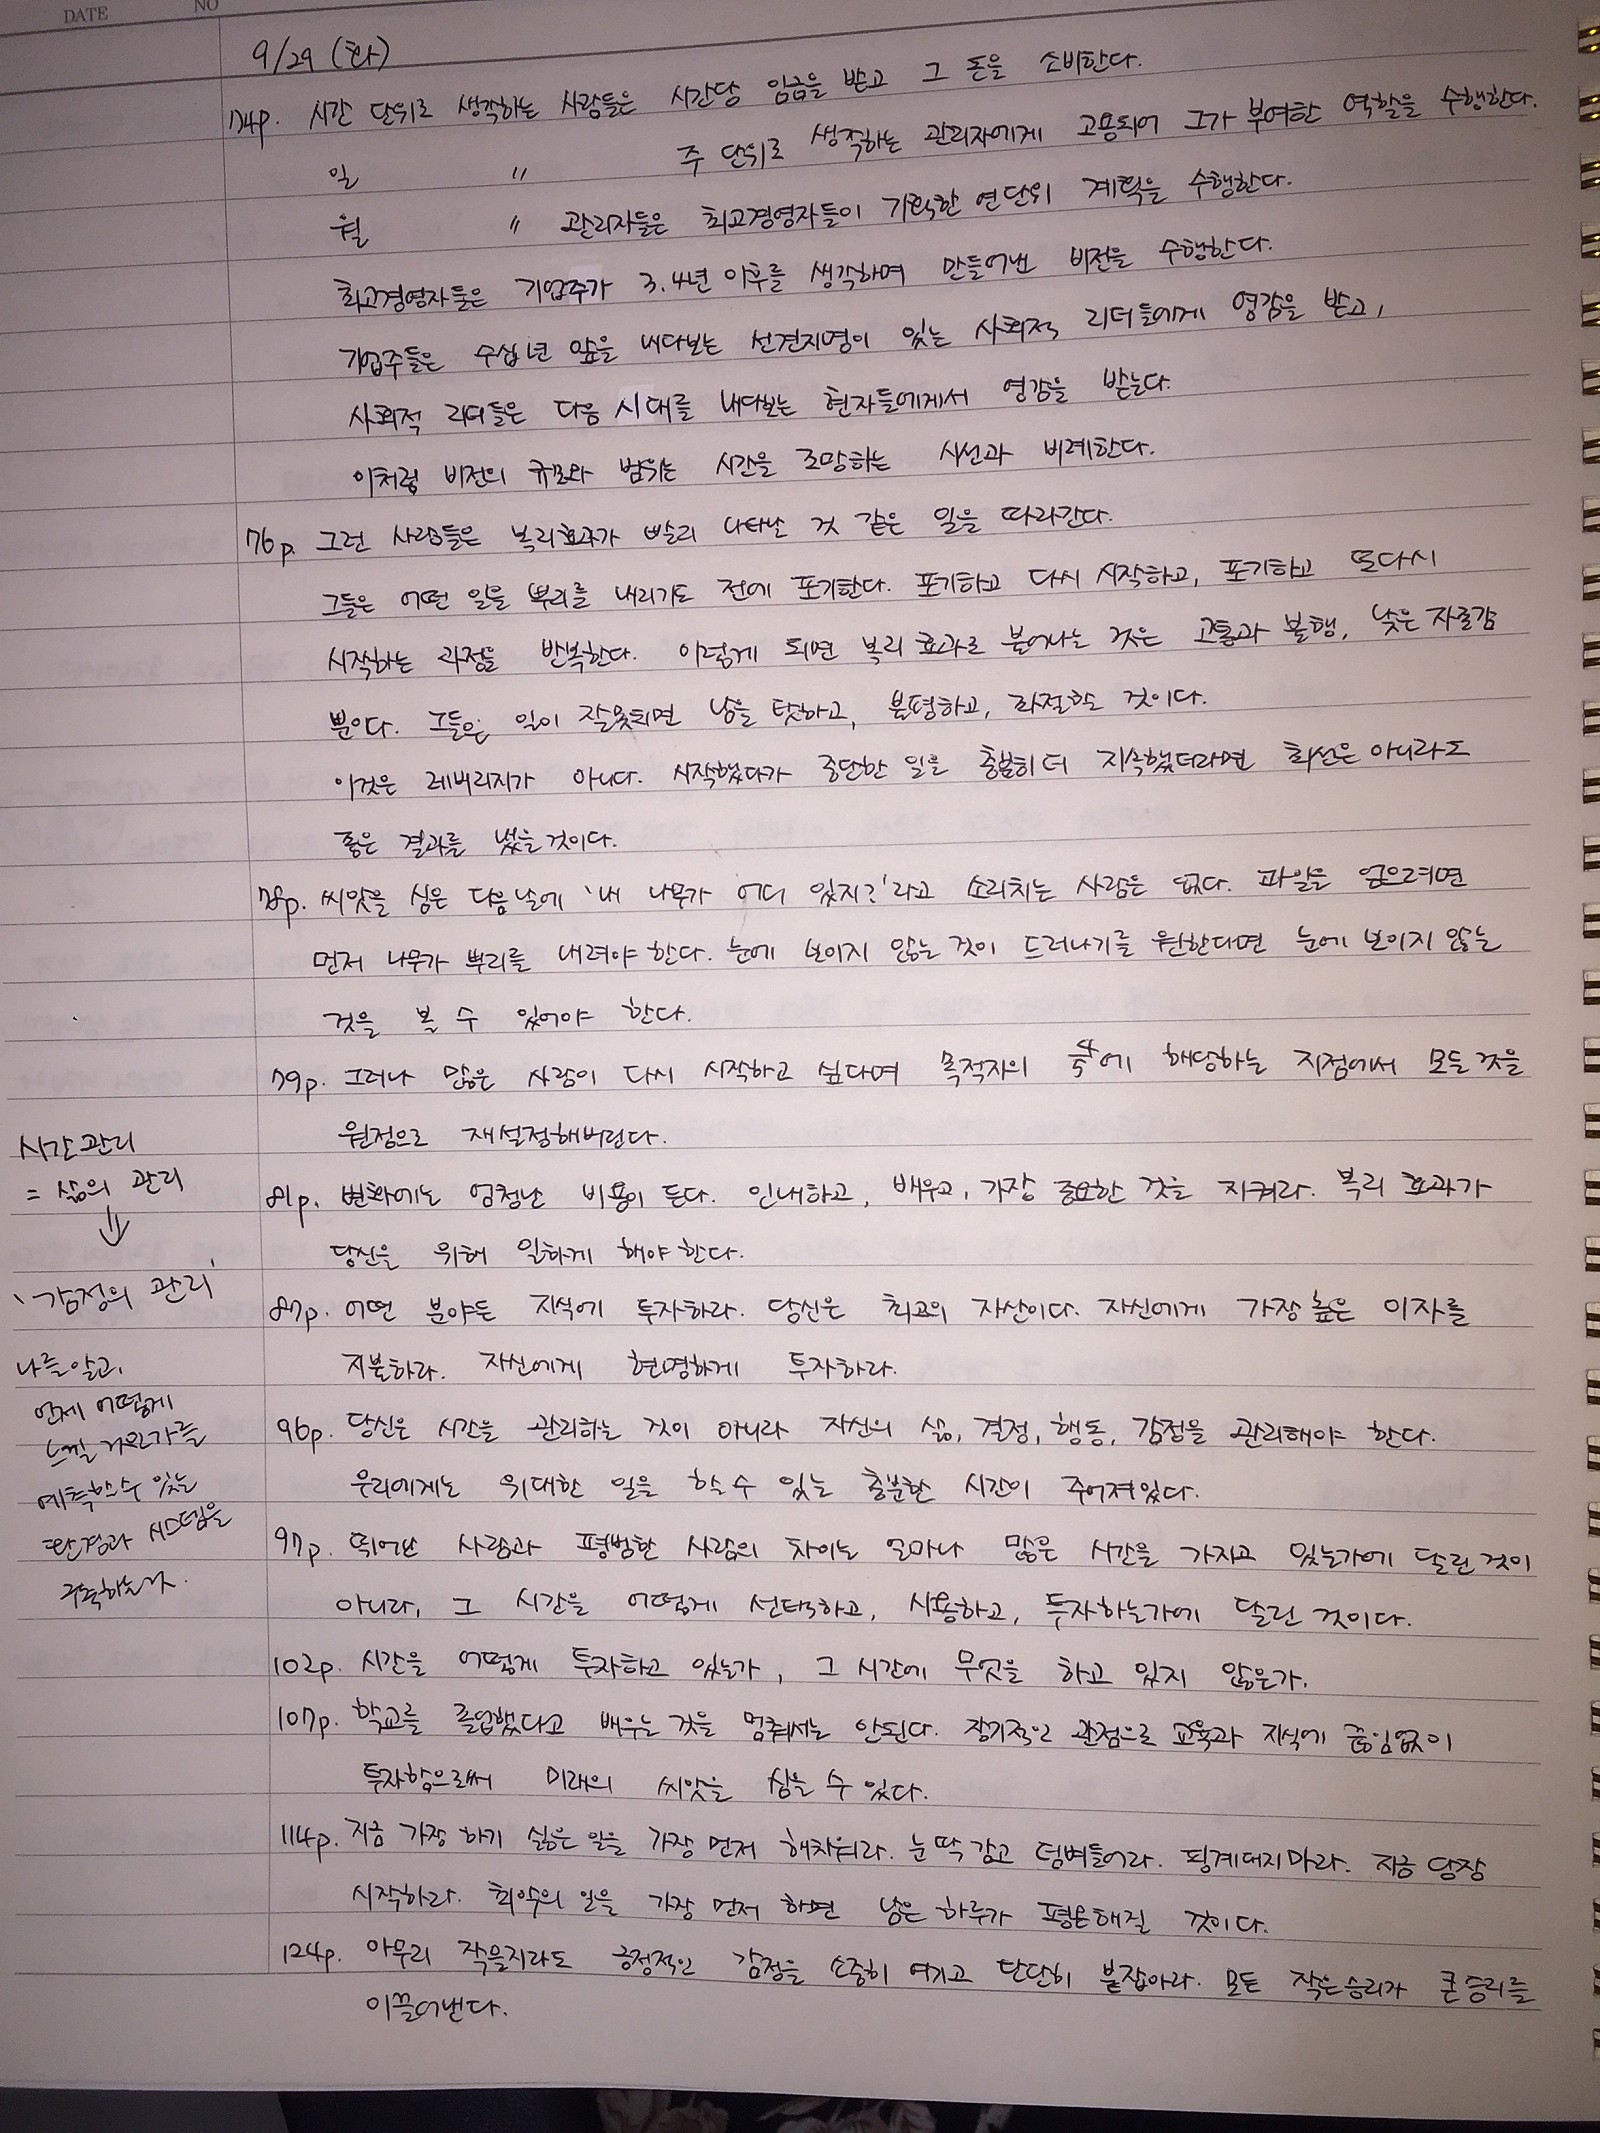 DATE NO
9/29 (화)
74p. 시간 단위로 생각하는 사람들은 시간당 임금을 받고 그 돈을 소비한다.
일 〃 주 단위로 생각하는 관리자에게 고용되어 그가 부여한 역할을 수행한다.
월 〃 관리자들은 최고경영자들이 기획한 연단위 계획을 수행한다.
최고경영자들은 기업주가 3.4년 이후를 생각하며 만들어낸 비전을 수행한다.
기업주들은 수십년 앞을 내다보는 선견지명이 있는 사회적 리더들에게 영감을 받고,
사회적 리더들은 다음 시대를 내다보는 현자들에게서 영감을 받는다.
이처럼 비전의 규모와 범위는 시간을 조망하는 시선과 비례한다.
76p. 그런 사람들은 복리효과가 빨리 나타날 것 같은 일을 따라간다.
그들은 어떤 일을 뿌리를 내리기도 전에 포기한다. 포기하고 다시 시작하고, 포기하고 또다시
시작하는 과정을 반복한다. 이렇게 되면 복리 효과로 불어나는 것은 고통과 불행, 낮은 자존감
뿐이다. 그들은 일이 잘못되면 남을 탓하고, 불평하고, 좌절할 것이다.
이것은 레버리지가 아니다. 시작했다가 중단한 일을 충분히 더 지속했더라면 최선은 아니라도
좋은 결과를 냈을것이다.
78p. 씨앗을 심은 다음날에 '내 나무가 어디 있지?'라고 소리치는 사람은 없다. 과일을 얻으려면
먼저 나무가 뿌리를 내려야 한다. 눈에 보이지 않는 것이 드러나기를 원한다면 눈에 보이지 않는
것을 볼 수 있어야 한다.
79p. 그러나 많은 사람이 다시 시작하고 싶다며 목적지의 에 해당하는 지점에서 모든 것을
원점으로 재설정해버린다.
81p. 변화에는 엄청난 비용이 든다. 인내하고, 배우고, 가장 중요한 것을 지켜라. 복리 효과가
당신을 위해 일하게 해야 한다.
87p. 어떤 분야든 지식에 투자하라. 당신은 최고의 자산이다. 자신에게 가장 높은 이자를
지불하라. 자신에게 현명하게 투자하라.
96p. 당신은 시간을 관리하는 것이 아니라 자신의 삶, 결정, 행동, 감정을 관리해야 한다.
우리에게는 위대한 일을 할 수 있는 충분한 시간이 주어져있다.
97p. 뛰어난 사람과 평범한 사람의 차이는 얼마나 많은 시간을 가지고 있는가에 달린 것이
아니라, 그 시간을 어떻게 선택하고, 사용하고, 투자하는가에 달린 것이다.
102p. 시간을 어떻게 투자하고 있는가, 그 시간에 무엇을 하고 있지 않은가.
107p. 학교를 졸업했다고 배우는 것을 멈춰서는 안된다. 장기적인 관점으로 교육과 지식에 끊임없이
투자함으로써 미래의 씨앗을 심을 수 있다.
114p. 지금 가장 하기 싫은 일을 가장 먼저 해치워라. 눈 딱 감고 덤벼들어라. 핑계대지마라. 지금 당장
시작하라. 최악의 일을 가장 먼저 하면 남은 하루가 평온해질 것이다.
124p. 아무리 작을지라도 긍정적인 감정을 소중히 여기고 단단히 붙잡아라. 모든 작은승리가 큰승리를
이끌어낸다.
시간관리
= 삶의 관리
⇓
'감정의 관리'
나를 알고,
언제 어떻게
느낄 거인가를
예측할 수 있는
환경과 시스템을
구축하는가.